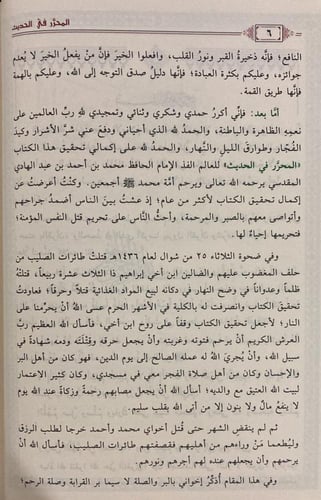 المحرّر في الحديث
٦
النافع؛ فإنَّه ذخيرةُ القبر ونورُ القلب، وافعلوا الخيرَ فإنَّ منْ يفعلُ الخيرَ لا يُعدم
جوائزه، وعليكم بكثرة العبادة؛ فإنَّها دليلُ صدق التوجه إلى الله، وعليكم بالهمة
فإنَّها طريق القمة.
أمَّا بعد: فإنِّي أكررُ حمدي وشكري وثنائي وتمجيدي للهِ ربِّ العالمين على
نعمِهِ الظاهرة والباطنة، والحمدُ لله الذي أحياني ودفعَ عني شرَّ الأشرار وكيدَ
الفُجَّار وطوارقَ الليل والنَّهار، والحمدُ لله على إكمالي تحقيق هذا الكتاب
«المحرَّر في الحديث» للعالم الفذ الإمام الحافظ محمد بن أحمد بن عبد الهادي
المقدسي يرحمه الله تعالى ويرحم أمّة محمد ﷺ أجمعين. وكنْتُ أعرضتُ عن
إكمال تحقيق الكتاب لأكثر من عام؛ إذ عشتُ بينَ الناس أضمدُ جراحهم
وأتواصى معهم بالصبر والمرحمة، وأحثُّ الناس على تحريم قتل النفس المؤمنة؛
فتحريمها إحياءٌ لها.
وفي ضحوة الثلاثاء ٢٥ من شوال لعام ١٤٣٦هـ قتلت طائرات الصليب من
حلف المغضوب عليهم والضالين ابن أخي إبراهيم ذا الثلاث عشرة ربيعاً، قتلتهُ
ظلماً وعدواناً في وضح النهار في دكانه لبيع المواد الغذائية قتلاً وحرقاً؛ فعاودتُ
تحقيق الكتاب وانصرفت له بالكلية في الأشهر الحرم عسى اللهُ أنْ يحرِّمنا على
النار؛ لأجعل تحقيق الكتاب وقفاً على روح ابن أخي، فأسأل الله العظيم ربَّ
العرش الكريم أنْ يرحم فتوته وغربته وأنْ يجعل حرقه وقِتْلَتَه ودمه شهادةً في
سبيل الله، وأن يُجريَ اللهُ له عمله الصالح إلى يوم الدين، فهو كان من أهل البر
والإحسان وكان من أهل صلاة الفجر معي في مسجدي، وكان كثير الاعتمار
لبيت الله العتيق مع والديه؛ أسأل الله أنْ يجعل مصابهم رحمةً وزكاةً عند الله يوم
لا ينفعُ مالٌ ولا بنون إلا من أتى الله بقلب سليم.
ثم لم ينقضِ الشهر حتى قُتل أخواي محمد وأحمد خرجا لطلب الرزق
وليُطعما مَنْ وراءهم من أهليهم فقصفتهم طائرات الصليب، فأسأل الله أنْ
يرحمهم وأن يجعلهم عنده لهم أجرهم ونورهم.
وفي هذا المقام أذكِّرُ إخواني بالبر والصلة لا سيما بر القرابة وصلة الرحم؛